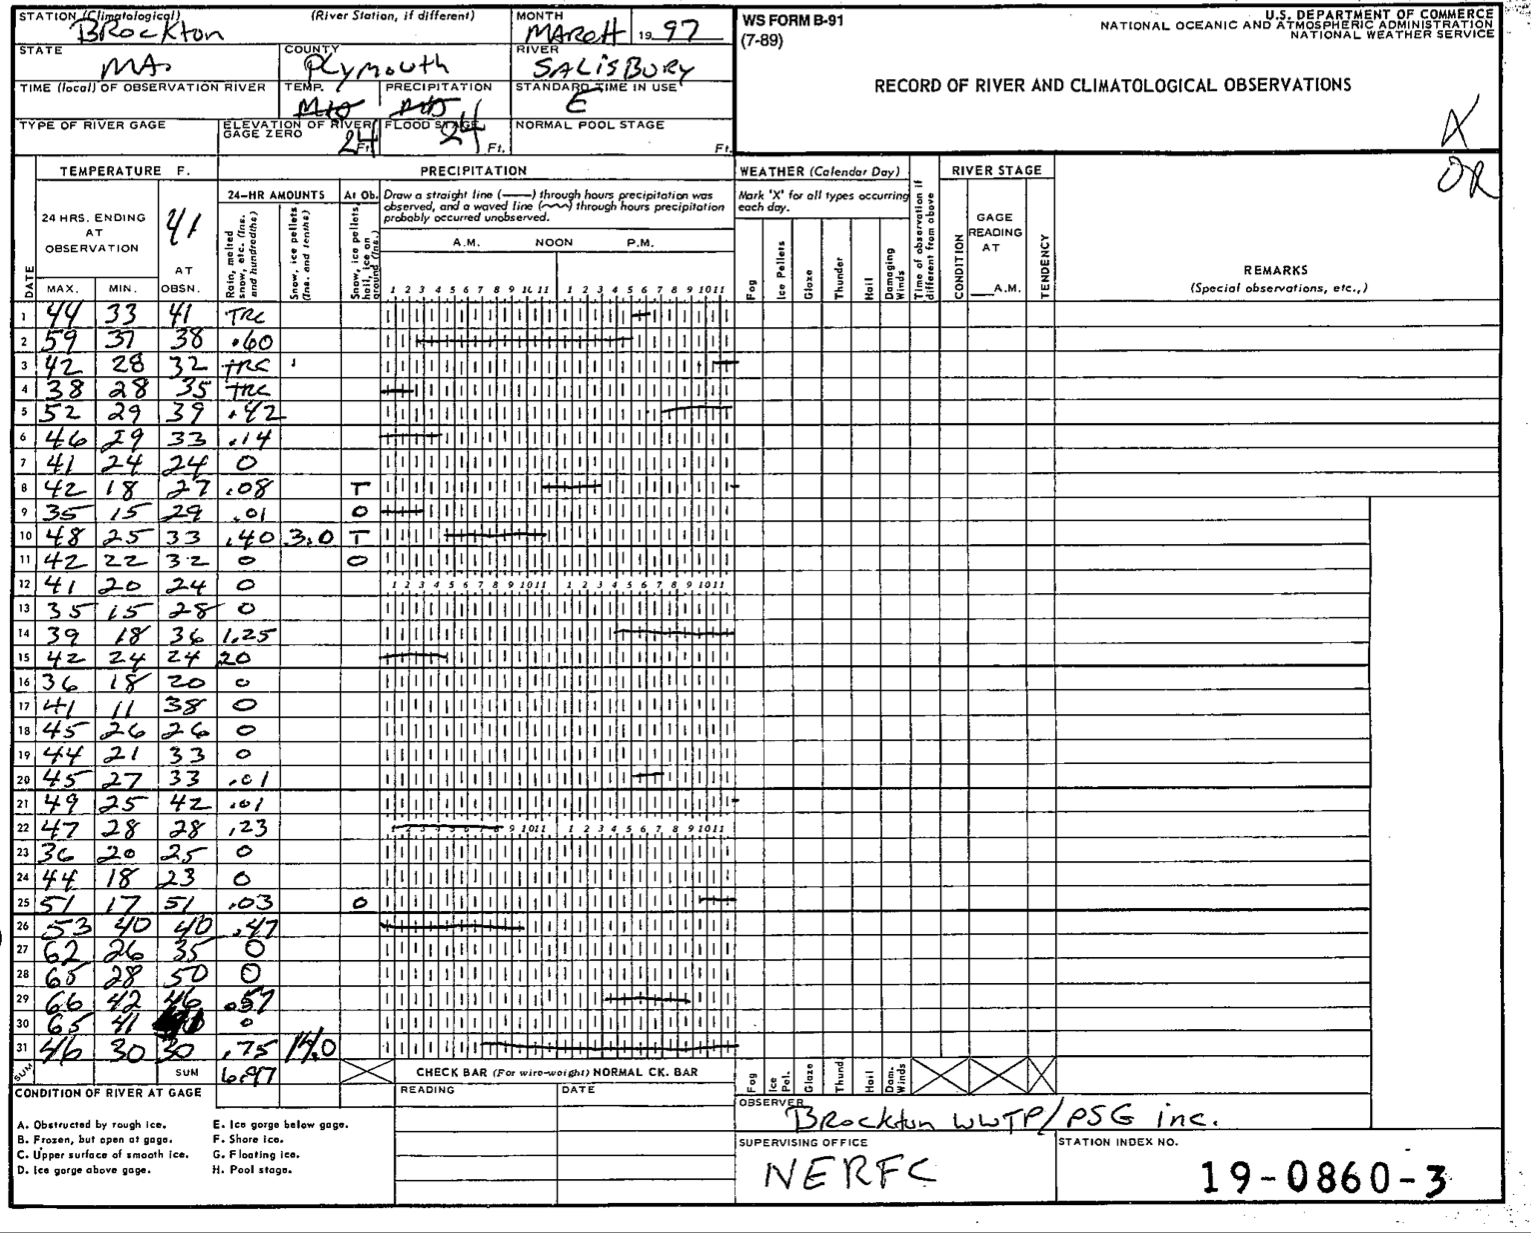 STATION (Climatological) (River Station, if different) MONTH WS FORM B-91 U.S. DEPARTMENT OF COMMERCE
Brockton MARCH 19 97 (7-89) NATIONAL OCEANIC AND ATMOSPHERIC ADMINISTRATION
NATIONAL WEATHER SERVICE
STATE COUNTY RIVER
MA. Plymouth SALISBURY
RECORD OF RIVER AND CLIMATOLOGICAL OBSERVATIONS
TIME (local) OF OBSERVATION RIVER TEMP. PRECIPITATION STANDARD TIME IN USE
E
TYPE OF RIVER GAGE ELEVATION OF RIVER GAGE ZERO FLOOD STAGE NORMAL POOL STAGE
24 Ft. 24 Ft. Ft.
TEMPERATURE F. PRECIPITATION WEATHER (Calendar Day) RIVER STAGE
24 HRS. ENDING AT OBSERVATION
24-HR AMOUNTS At Ob.
Draw a straight line (——) through hours precipitation was
observed, and a waved line (~~~) through hours precipitation
probably occurred unobserved.
Mark 'X' for all types occurring
each day.
Time of observation if different from above
CONDITION
GAGE READING AT
A.M.
TENDENCY
41
AT OBSN.
Rain, melted snow, etc. (Ins. and hundredths)
Snow, ice pellets (Ins. and tenths)
Snow, ice pellets, hail, ice on ground (Ins.)
A.M. NOON P.M.
Fog Ice Pellets Glaze Thunder Hail Damaging Winds
REMARKS
(Special observations, etc.,)
DATE MAX. MIN.
1 2 3 4 5 6 7 8 9 10 11 1 2 3 4 5 6 7 8 9 10 11
1 44 33 41 TRC
2 59 37 38 .60
3 42 28 32 TRC
4 38 28 35 TRC
5 52 29 39 .42
6 46 29 33 .14
7 41 24 24 0
8 42 18 27 .08 T
9 35 15 29 .01 0
10 48 25 33 .40 3.0 T
11 42 22 32 0 0
12 41 20 24 0 1 2 3 4 5 6 7 8 9 10 11 1 2 3 4 5 6 7 8 9 10 11
13 35 15 28 0
14 39 18 36 1.25
15 42 24 24 20
16 36 18 20 0
17 41 11 38 0
18 45 26 26 0
19 44 21 33 0
20 45 27 33 .01
21 49 25 42 .01
22 47 28 28 .23 9 10 11 1 2 3 4 5 6 7 8 9 10 11
23 36 20 25 0
24 44 18 23 0
25 51 17 51 .03 0
26 53 40 40 .47
27 62 26 35 0
28 65 28 50 0
29 66 42 46 .57
30 65 41 0
31 46 30 30 .75 14.0
SUM SUM 6.97
CHECK BAR (For wire-weight) NORMAL CK. BAR
Fog Ice Pel. Glaze Thund Hail Dam. Winds
CONDITION OF RIVER AT GAGE READING DATE
A. Obstructed by rough ice. E. Ice gorge below gage.
B. Frozen, but open at gage. F. Shore ice.
C. Upper surface of smooth ice. G. Floating ice.
D. Ice gorge above gage. H. Pool stage.
OBSERVER
Brockton WWTP/PSG inc.
SUPERVISING OFFICE STATION INDEX NO.
NERFC 19-0860-3